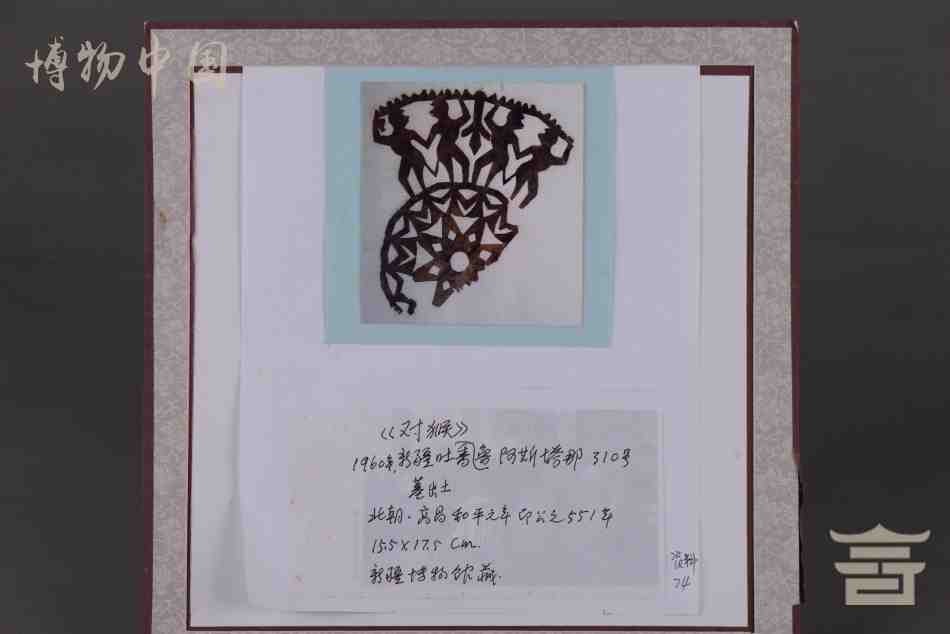 博物中国
《对猴》
1960年新疆吐鲁番阿斯塔那310号
墓出土
北朝·高昌和平元年即公元551年
15.5×17.5 Cm.
新疆博物馆藏.
资料
74